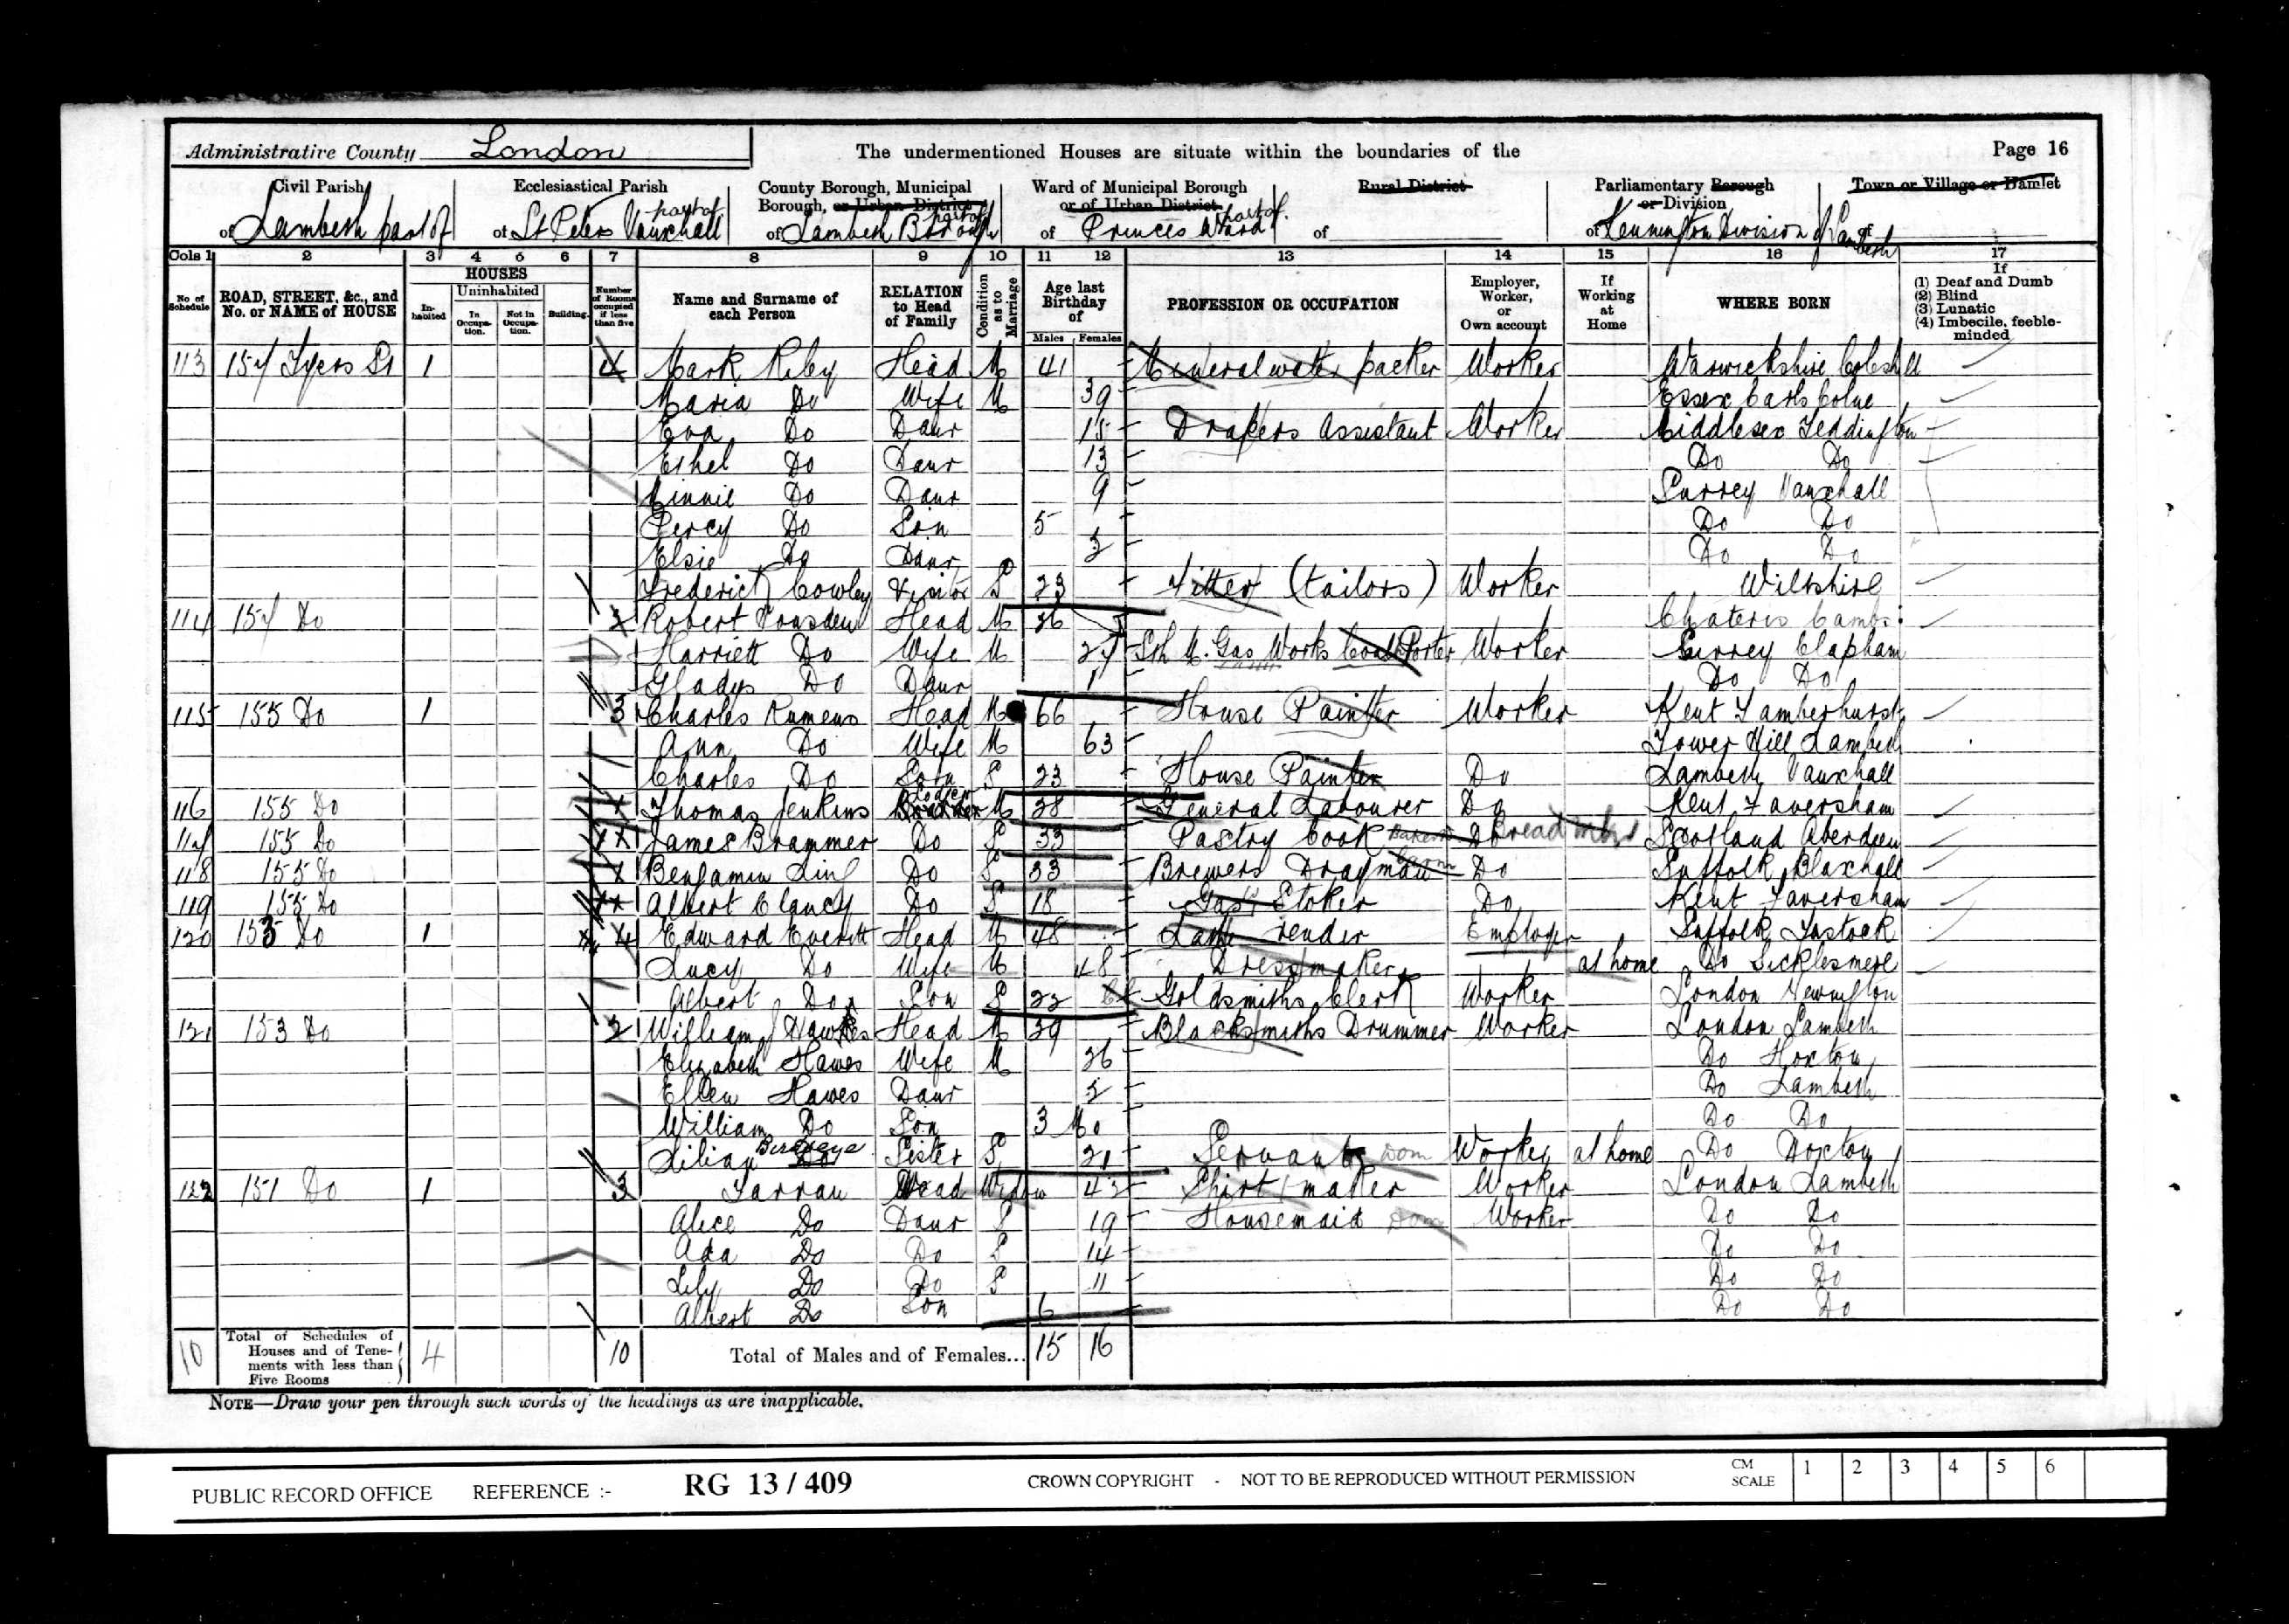 Administrative County London The undermentioned Houses are situate within the boundaries of the Page 16
Civil Parish Ecclesiastical Parish County Borough, Municipal Borough, or Urban District Ward of Municipal Borough or of Urban District Rural District Parliamentary Borough or Division Town or Village or Hamlet
of Lambeth part of of St Peters Vauxhall part of of Lambeth Borough part of of Princes Ward part of. of of Kennington Division of Lambeth of
Cols 1 2 3 4 5 6 7 8 9 10 11 12 13 14 15 16 17
No. of Schedule ROAD, STREET, &c., and No. or NAME of HOUSE HOUSES Inhabited Uninhabited In Occupation. Not in Occupation. Building. Number of Rooms occupied if less than five Name and Surname of each Person RELATION to Head of Family Condition as to Marriage Age last Birthday of Males Females PROFESSION OR OCCUPATION Employer, Worker, or Own account If Working at Home WHERE BORN If (1) Deaf and Dumb (2) Blind (3) Lunatic (4) Imbecile, feeble-minded
113 157 Tyers St 1 4 Mark Riley Head M 41 Mineral water packer Worker Warwickshire Coleshill
Maria Do Wife M 39 Essex Earls Colne
Eva Do Daur 15 Drapers Assistant Worker Middlesex Teddington
Ethel Do Daur 13 Do Do
Minnie Do Daur 9 Surrey Vauxhall
Percy Do Son 5 Do Do
Elsie Do Daur Do Do
Frederick Cowley Visitor S 23 Fitter (tailors) Worker Wiltshire
114 157 Do 2 Robert Head M 26 Chateris Cambs
Harriett Do Wife M 27 Sth M. Gas Works Coal Porter Worker Surrey Clapham
Gladys Do Daur 1 Do Do
115 155 Do 1 3 Charles Rumens Head M 66 House Painter Worker Kent Lamberhurst
Ann Do Wife M 63 Tower Hill Lambeth
Charles Do Son S 23 House Painter Do Lambeth Vauxhall
116 155 Do 1 Thomas Jenkins Lodger M 28 General Labourer Do Kent Faversham
117 155 Do 1 James Brammer Do S 33 Pastry Cook Do Bread Scotland Aberdeen
118 155 Do 1 Benjamin Ling Do S 33 Brewers Drayman Do Suffolk Blaxhall
119 155 Do 1 Albert Clancy Do S 18 Gas Stoker Do Kent Faversham
120 153 Do 1 4 Edward Everett Head M 48 Lath render Employer Suffolk
Lucy Do Wife M 48 Dressmaker at home Do Sicklesmere
Albert Do Son S 22 Goldsmiths Clerk Worker London Newington
121 153 Do 2 William J Hawes Head M 29 Blacksmiths Drummer Worker London Lambeth
Elizabeth Hawes Wife M 26 Do Hoxton
Ellen Hawes Daur 2 Do Lambeth
William Do Son 3 Mo Do Do
Lilian Birdseye Do Sister S 21 Servant Dom Worker at home Do Hoxton
122 151 Do 1 3 Farran Head Widow 42 Shirt maker Worker London Lambeth
Alice Do Daur S 19 Housemaid Dom Worker Do Do
Ada Do Do S 14 Do Do
Lily Do Do S 11 Do Do
Albert Do Son 6 Do Do
10 Total of Schedules of Houses and of Tenements with less than Five Rooms 4 10 Total of Males and of Females... 15 16
NOTE—Draw your pen through such words of the headings as are inapplicable.
PUBLIC RECORD OFFICE REFERENCE :- RG 13 / 409 CROWN COPYRIGHT - NOT TO BE REPRODUCED WITHOUT PERMISSION CM SCALE 1 2 3 4 5 6